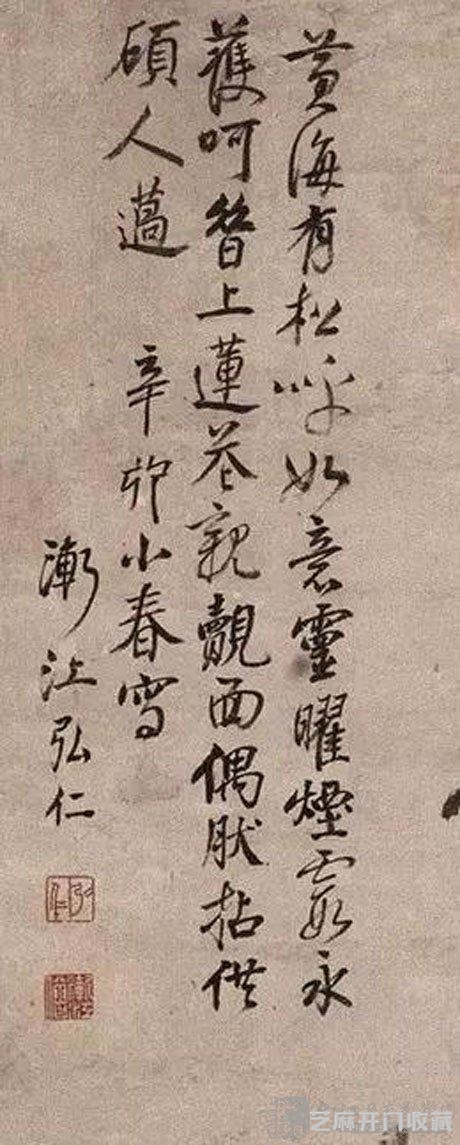 黃海有松呼如意靈曜煙霞永
護呵曾上蓮花親覿面偶肰拈供
碩人薖 辛卯小春寫
漸江弘仁
弘仁
芝麻开门收藏